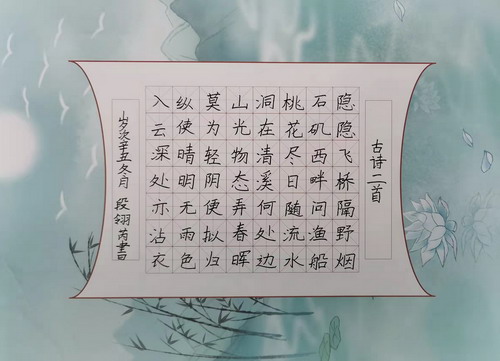 古诗二首
隐隐飞桥隔野烟
石矶西畔问渔船
桃花尽日随流水
洞在清溪何处边
山光物态弄春晖
莫为轻阴便拟归
纵使晴明无雨色
入云深处亦沾衣
岁次辛丑冬月 段翎芮書